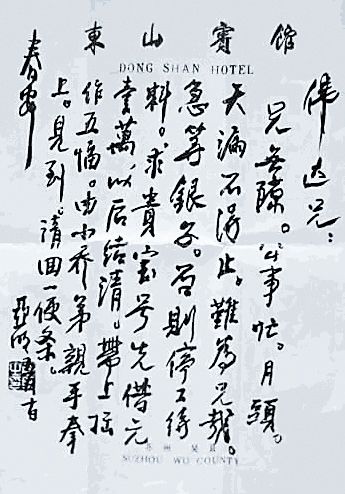 東山賓館
DONG SHAN HOTEL
偉达兄：
兄無隙。公事忙。月頭。
天漏不得止。難為兄報。
急等銀子。否則停工待
料。求貴宝号先借元
壹萬以后结清。帶上拙
作五幅。由小乔弟親手奉
上。見到。请回一便条。
春安
亞明
SUZHOU WU COUNTY